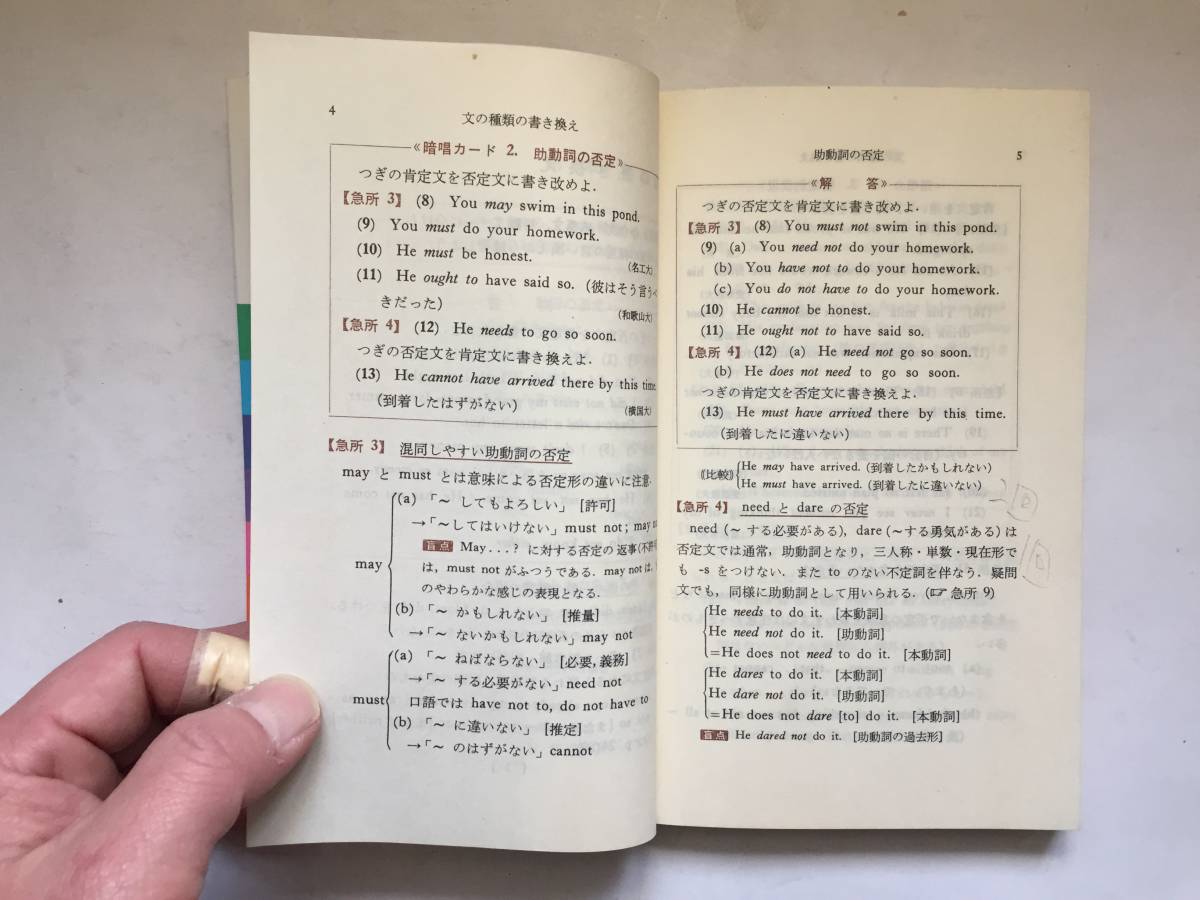 4
文の種類の書き換え
《暗唱カード 2. 助動詞の否定》
つぎの肯定文を否定文に書き改めよ.
【急所 3】 (8) You may swim in this pond.
(9) You must do your homework.
(10) He must be honest.
(名工大)
(11) He ought to have said so. (彼はそう言うべ
きだった)
(和歌山大)
【急所 4】 (12) He needs to go so soon.
つぎの否定文を肯定文に書き換えよ.
(13) He cannot have arrived there by this time.
(到着したはずがない)
(横国大)
【急所 3】 混同しやすい助動詞の否定
may と must とは意味による否定形の違いに注意.
may
(a) 「～ してもよろしい」 [許可]
→「～してはいけない」 must not; may no
盲点 May...? に対する否定の返事(不許
は, must not がふつうである. may not は,
のやわらかな感じの表現となる.
(b) 「～ かもしれない」 [推量]
→「～ ないかもしれない」 may not
must
(a) 「～ ねばならない」 [必要, 義務]
→「～ する必要がない」 need not
口語では have not to, do not have to
(b) 「～ に違いない」 [推定]
→「～ のはずがない」 cannot
助動詞の否定
5
《解 答》
つぎの否定文を肯定文に書き改めよ.
【急所 3】 (8) You must not swim in this pond.
(9) (a) You need not do your homework.
(b) You have not to do your homework.
(c) You do not have to do your homework.
(10) He cannot be honest.
(11) He ought not to have said so.
【急所 4】 (12) (a) He need not go so soon.
(b) He does not need to go so soon.
つぎの肯定文を否定文に書き換えよ.
(13) He must have arrived there by this time.
(到着したに違いない)
《比較》 He may have arrived. (到着したかもしれない)
He must have arrived. (到着したに違いない)
【急所 4】 need と dare の否定
need (～ する必要がある), dare (～する勇気がある) は
否定文では通常, 助動詞となり, 三人称・単数・現在形で
も -s をつけない. また to のない不定詞を伴なう. 疑問
文でも, 同様に助動詞として用いられる. (☞ 急所 9)
He needs to do it. [本動詞]
He need not do it. [助動詞]
=He does not need to do it. [本動詞]
He dares to do it. [本動詞]
He dare not do it. [助動詞]
=He does not dare [to] do it. [本動詞]
盲点 He dared not do it. [助動詞の過去形]